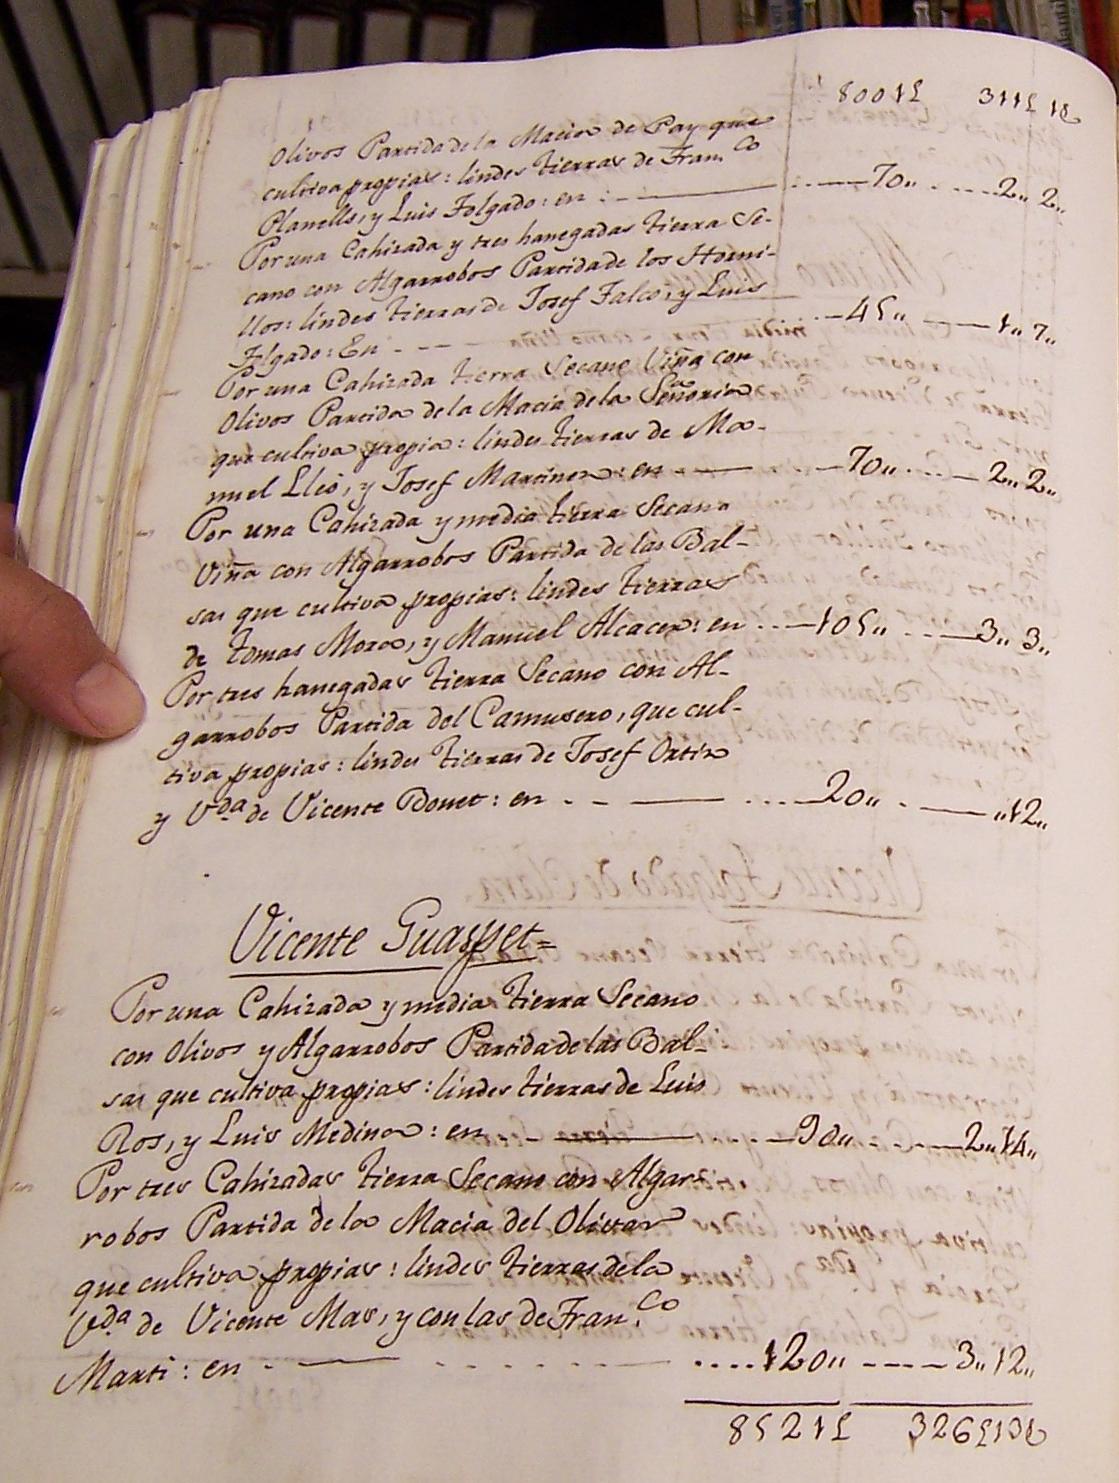 8001£ 311£ 1
Olivos Partida de la Macia de Pay que
cultiva propias: lindes tierras de Fran.co
Planells, y Luis Folgado: en 70,, 2,, 2,,
Por una Cahizada y tres hanegadas tierra Se-
cano con Algarrobos Partida de los Horni-
llos: lindes tierras de Josef Falco, y Luis
Folgado: En 45,, 1,, 7,,
Por una Cahizada tierra Secano Viña con
Olivos Partida de la Macia de la Señoria
que cultiva propia: lindes tierras de Ma-
nuel Lleo, y Josef Martinez: en 70,, 2,, 2,,
Por una Cahizada y media tierra Secano
Viña con Algarrobos Partida de las Bal-
sas que cultiva propias: lindes tierras
de Tomas Mora, y Manuel Alcacer: en 105,, 3,, 3,,
Por tres hanegadas tierra Secano con Al-
garrobos Partida del Camusero, que cul-
tiva propias: lindes tierras de Josef Ortiz
y V.da de Vicente Bonet: en 20,, ,,12,,
Vicente Guaypet=
Por una Cahizada y media tierra Secano
con Olivos y Algarrobos Partida de las Bal-
sas que cultiva propias: lindes tierras de Luis
Ros, y Luis Medina: en 90,, 2,,14,,
Por tres Cahizadas tierra Secano con Algar-
robos Partida de la Macia del Olivar
que cultiva propias: lindes tierras de la
V.da de Vicente Mas, y con las de Fran.co
Marti: en 120,, 3,, 12,,
8521£ 326£13